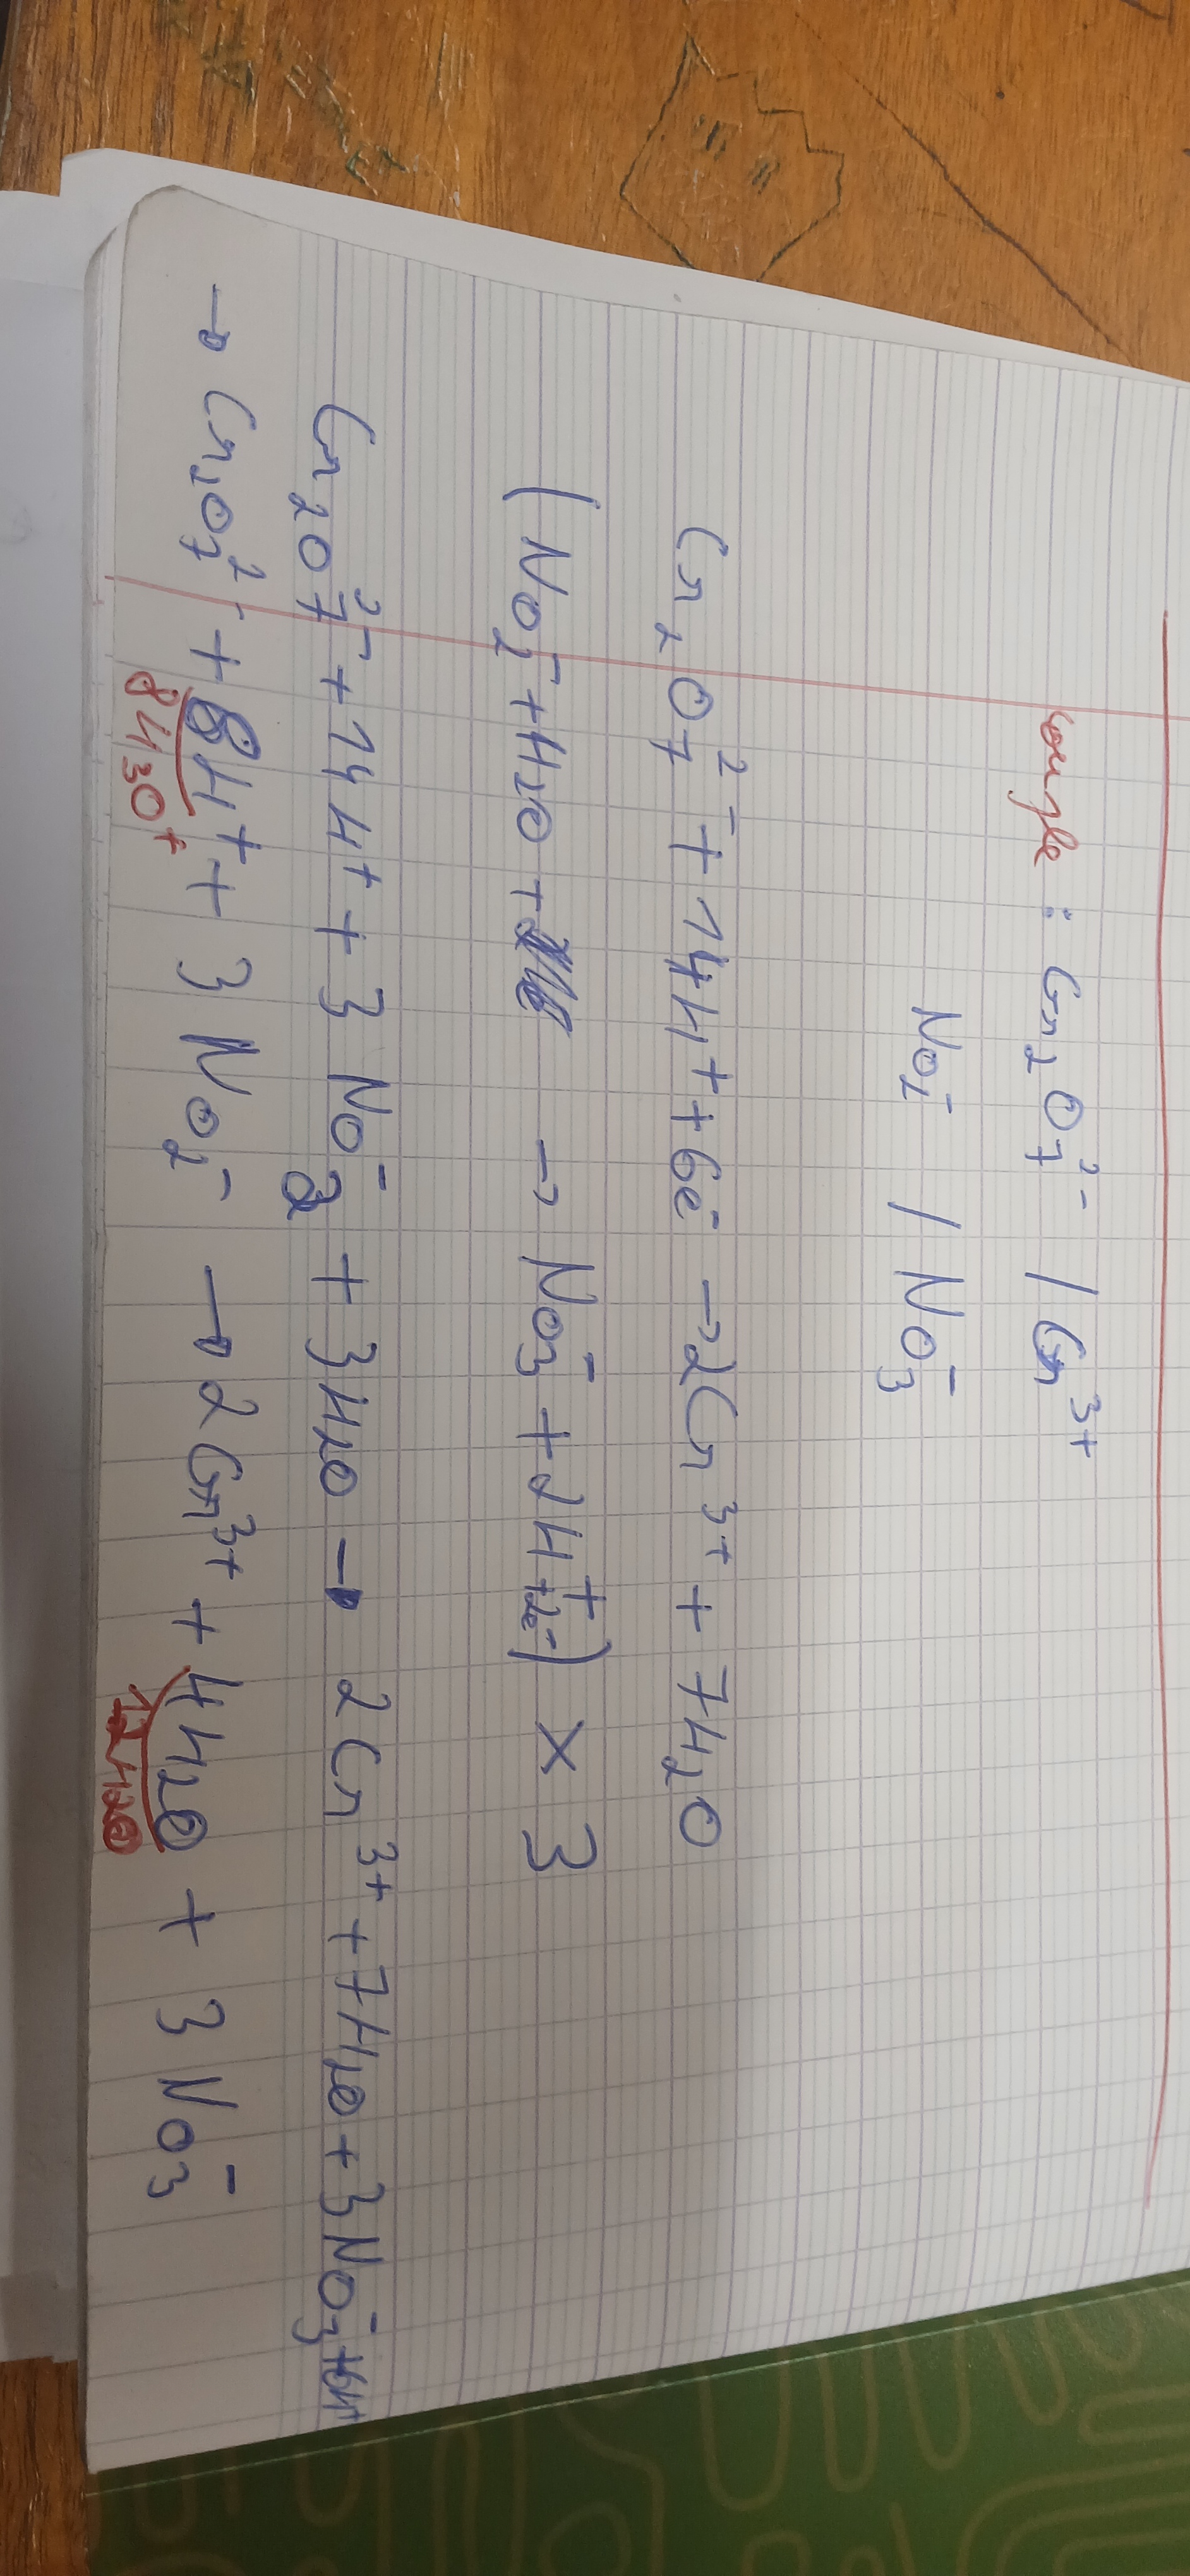 couple : Cr₂O₇²⁻ / Cr³⁺
NO₂⁻ / NO₃⁻
Cr₂O₇²⁻ + 14H⁺ + 6e⁻ → 2Cr³⁺ + 7H₂O
(NO₂⁻ + H₂O + → NO₃⁻ + 2H⁺ + 2e⁻) × 3
Cr₂O₇²⁻ + 14H⁺ + 3 NO₂⁻ + 3H₂O → 2Cr³⁺ + 7H₂O + 3NO₃⁻ + 6H⁺
→ Cr₂O₇²⁻ + 8H⁺ + 3 NO₂⁻ → 2Cr³⁺ + 4H₂O + 3 NO₃⁻
8H₃O⁺ 12H₂O